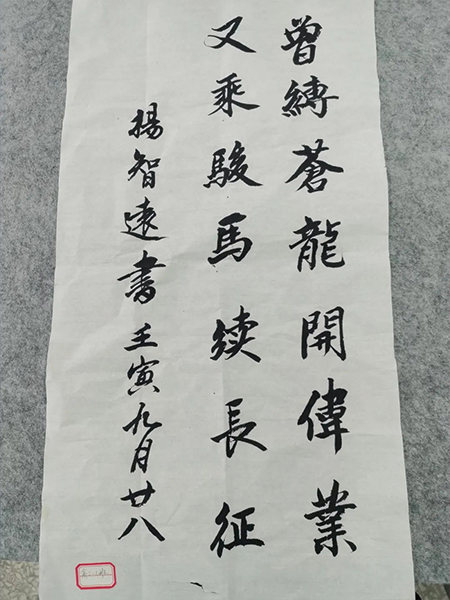 曾縛蒼龍開偉業
又乘駿馬续長征
揚智遠書壬寅九月廿八